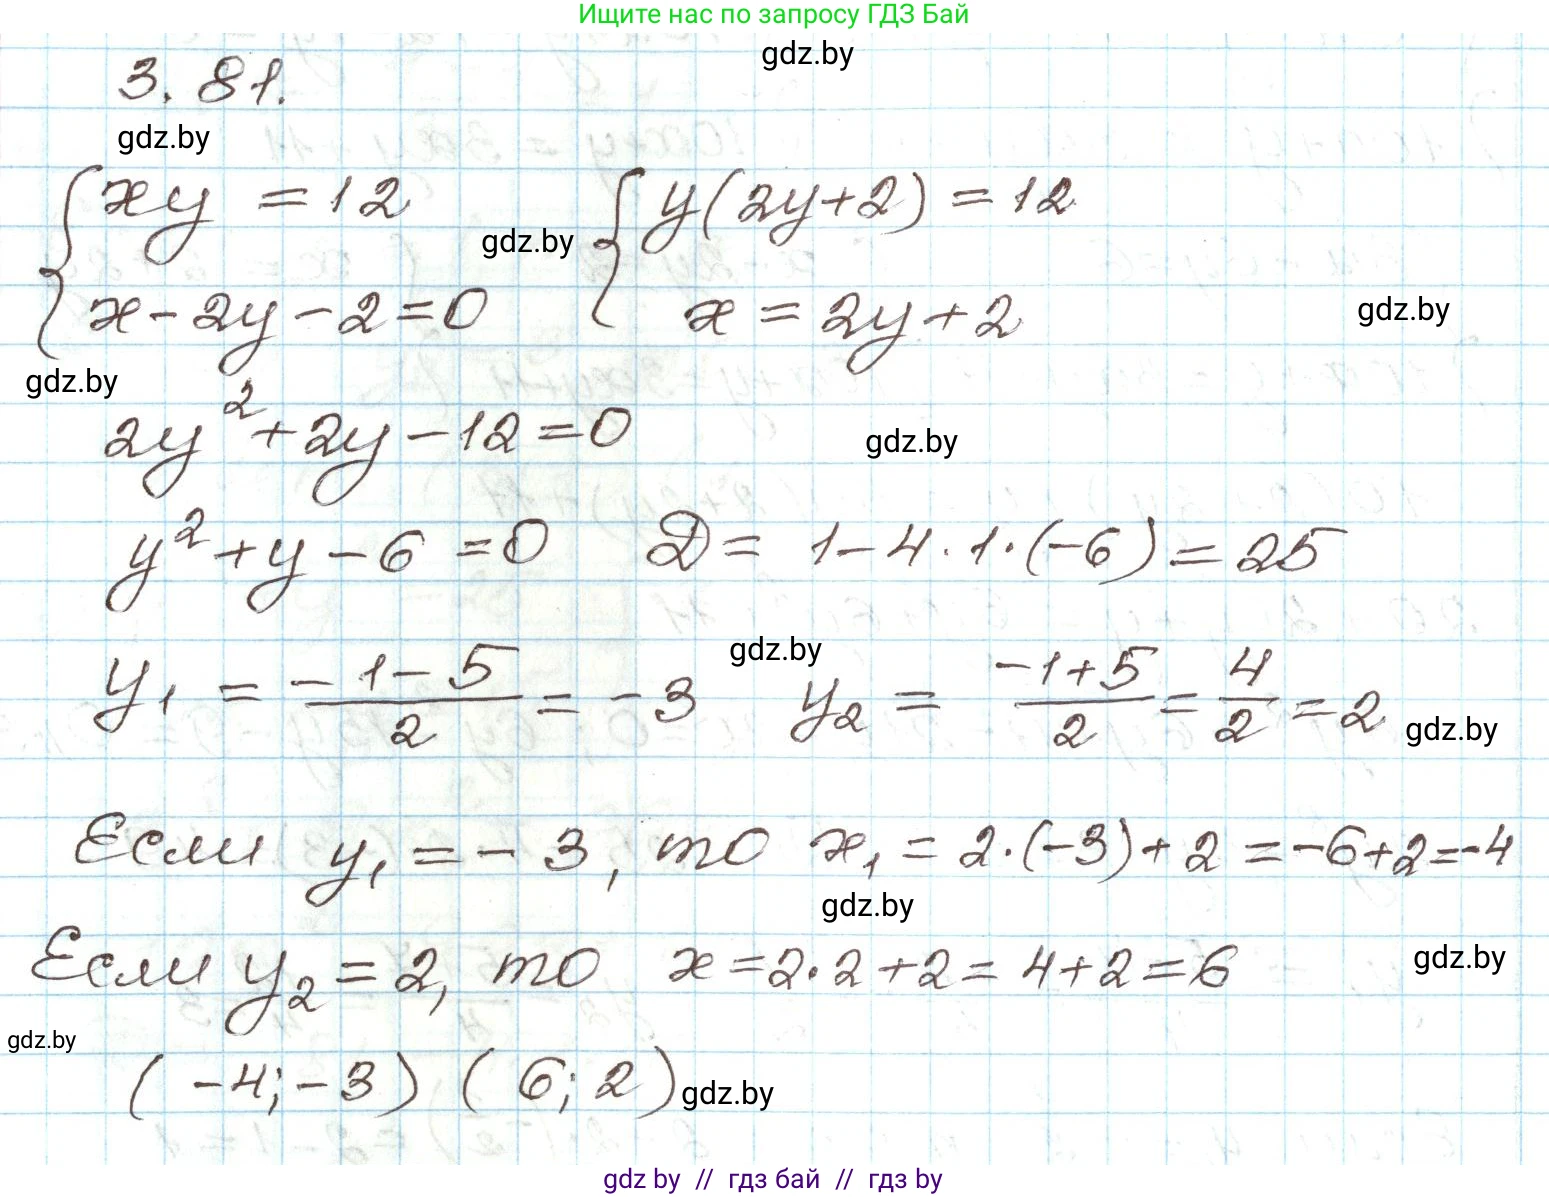 Ищите нас по запросу ГДЗ Бай
gdz.by
3.81.
gdz.by
{ xy = 12 { y(2y+2) = 12
gdz.by
x - 2y - 2 = 0 x = 2y + 2
gdz.by
gdz.by
2y² + 2y - 12 = 0
gdz.by
y² + y - 6 = 0 D = 1 - 4 · 1 · (-6) = 25
gdz.by
y₁ = (-1-5)/2 = -3 y₂ = (-1+5)/2 = 4/2 = 2
gdz.by
Если y₁ = -3, то x₁ = 2·(-3) + 2 = -6+2=-4
gdz.by
Если y₂ = 2, то x = 2·2 + 2 = 4+2 = 6
gdz.by
gdz.by
(-4; -3) (6; 2)
gdz.by
gdz by // гдз бай // гдз by